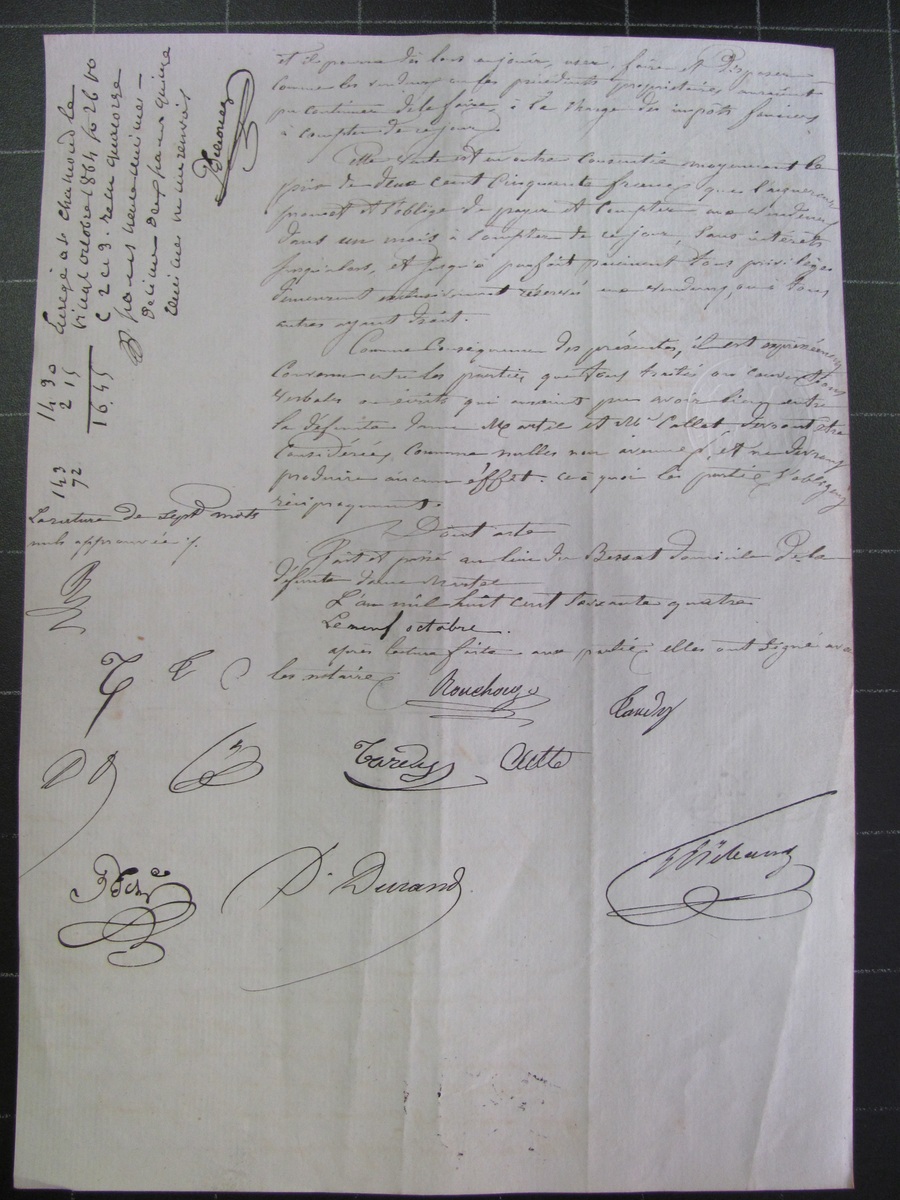 et il pourra dès lors en jouir, user, faire et disposer
comme les vendeurs ou les précédents propriétaires auraient
pu continuer de le faire, à la charge des impôts fonciers
à compter de ce jour.
Cette vente est en outre consentie moyennant le
prix de deux cent cinquante francs que l'acquéreur
promet et s'oblige de payer et compter aux vendeurs
dans un mois à compter de ce jour, sans intérêts
jusqu'alors, et jusqu'à parfait paiement tous privilèges
demeurent réservés aux vendeurs, ou à tous
autres ayant droit.
Comme conséquence des présentes, il est expressément
convenu entre les parties, que tous traités ou conventions
verbales ou écrits qui auraient pu avoir lieu entre
la défunte dame Martel et Mr Collet devront être
considérés, comme nulles non avenues, et ne devront
produire aucun effet. ce à quoi les parties s'obligent
réciproquement.
Dont acte
Fait et passé au lieu du Bessat domicile de la
défunte dame
L'an mil huit cent soixante quatre
Le neuf octobre.
après lecture faite aux parties elles ont signé avec
les notaires
Enregé à St Chamond le
vingt octobre 1864 fo 26 vo
C 2 et 3. reçu quatorze
francs
décime deux francs quinze
centimes
14 90
2 15
16.45
143
72
La rature de sept mots
nuls approuvée
Tardy
D. Durand